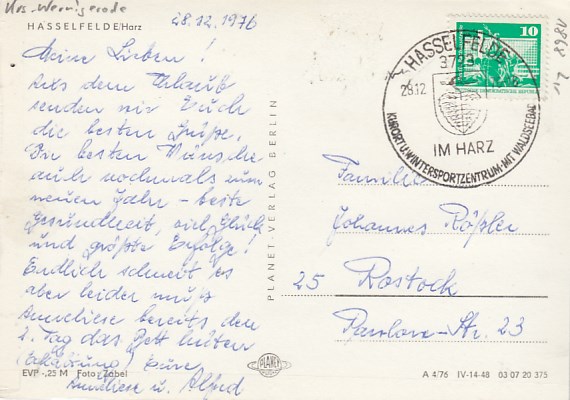 Krs. Wernigerode
HASSELFELDE/Harz
28.12.1976
Meine Lieben!
Aus dem Urlaub
senden wir Euch
die besten Grüße.
Die besten Wünsche
auch nochmals zum
neuen Jahr – beste
Gesundheit, viel Glück
und größte Erfolge!
Endlich schneit es
aber leider muß
Anneliese bereits den
2. Tag das Bett hüten
(Erkältung) Eure
Anneliese u. Alfred
EVP -,25 M Foto: Zabel
PLANET-VERLAG BERLIN
PLANET
10
HASSELFELDE
3723
28.12
IM HARZ
KURORT U. WINTERSPORTZENTRUM · MIT WALDSEEBAD
Familie
Johannes Rößler
25 Rostock
Pawlow-Str. 23
A 4/76 IV-14-48 03 07 20 375